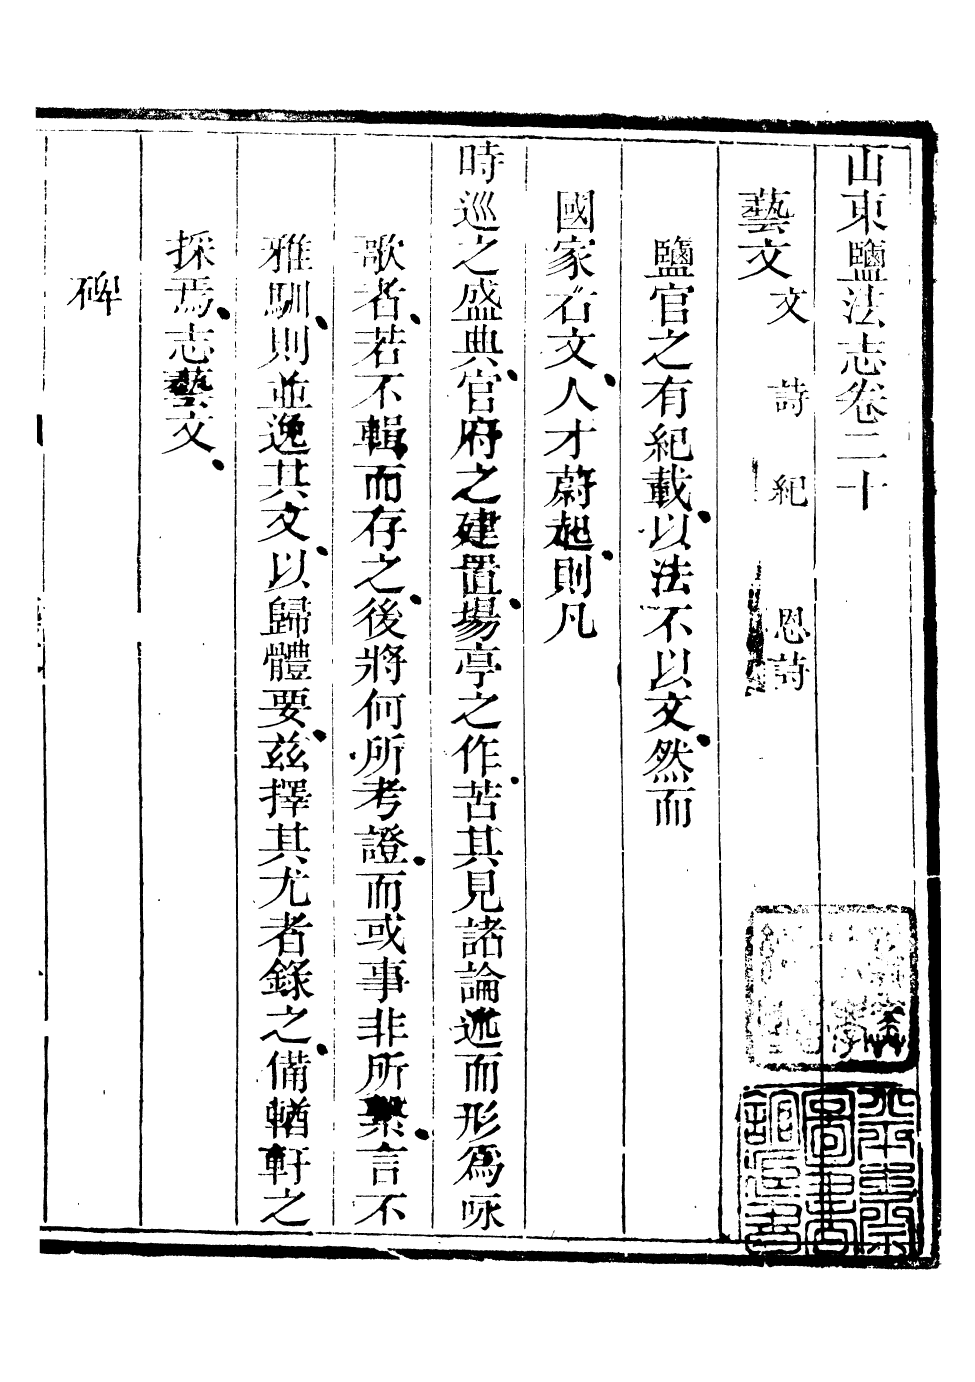 山東鹽法志卷二十
藝文 文 詩 紀 恩詩
鹽官之有紀載以法不以文然而
國家右文人才蔚起則凡
時巡之盛典官府之建置場亭之作苦其見諸論述而形爲咏
歌者若不輯而存之後將何所考證而或事非所繫言不
雅馴則並逸其文以歸體要茲擇其尤者錄之備輶軒之
採焉志藝文
碑